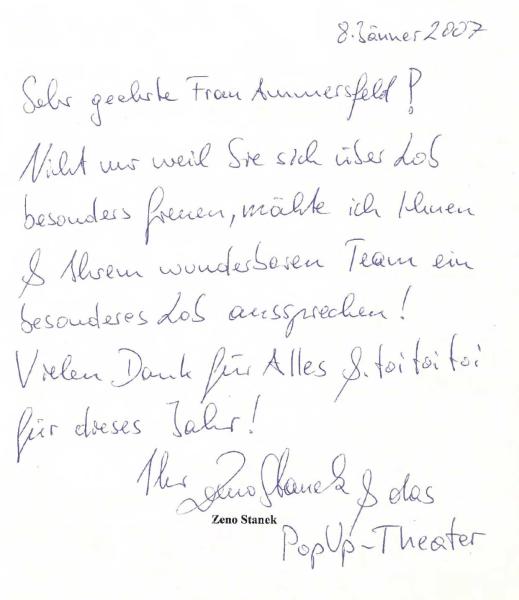 8. Jänner 2007
Sehr geehrte Frau Ammersfeld!
Nicht nur weil Sie sich über Lob
besonders freuen, möchte ich Ihnen
& Ihrem wunderbaren Team ein
besonderes Lob aussprechen!
Vielen Dank für Alles & toi toi toi
für dieses Jahr!
Ihr Zeno Stanek & das
Zeno Stanek
PopUp-Theater